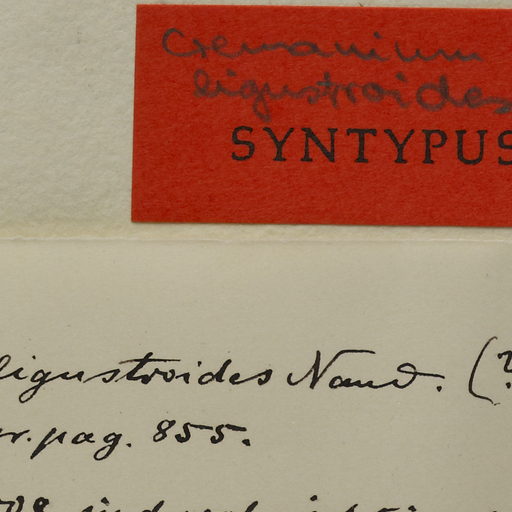 Cremanium
ligustroides
SYNTYPUS
ligustroides Naud. (?
pag. 855.